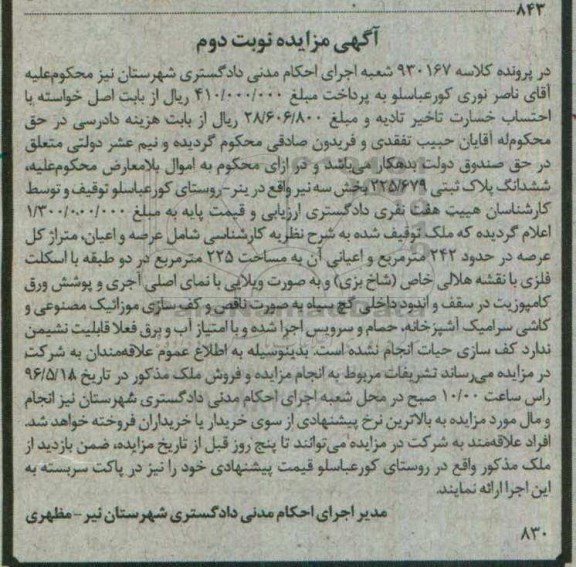 ۸۴۳
آگهی مزایده نوبت دوم
در پرونده کلاسه ۹۳۰۱۶۷ شعبه اجرای احکام مدنی دادگستری شهرستان نیز محکوم‌علیه
آقای ناصر نوری کورعباسلو به پرداخت مبلغ ۴۱۰/۰۰۰/۰۰۰ ریال از بابت اصل خواسته با
احتساب خسارت تاخیر تادیه و مبلغ ۲۸/۶۰۶/۸۰۰ ریال از بابت هزینه دادرسی در حق
محکوم‌له آقایان حبیب تفقدی و فریدون صادقی محکوم گردیده و نیم عشر دولتی متعلق
در حق صندوق دولت بدهکار می‌باشد و در ازای محکوم به اموال بلامعارض محکوم‌علیه،
ششدانگ پلاک ثبتی ۲۲۵/۶۷۹ بخش سه نیر واقع در ینر-روستای کورعباسلو توقیف و توسط
کارشناسان هییت هفت نفری دادگستری ارزیابی و قیمت پایه به مبلغ ۱/۳۰۰/۰۰۰/۰۰۰
اعلام گردیده که ملک توقیف شده به شرح نظریه کارشناسی شامل عرصه و اعیان، متراژ کل
عرصه در حدود ۲۴۲ مترمربع و اعیانی آن به مساحت ۲۲۵ مترمربع در دو طبقه با اسکلت
فلزی با نقشه هلالی خاص (شاخ بزی) و به صورت ویلایی با نمای اصلی آجری و پوشش ورق
کامپوزیت در سقف و اندود داخلی گچ سیاه به صورت ناقص و کف سازی موزائیک مصنوعی و
کاشی سرامیک آشپزخانه، حمام و سرویس اجرا شده و با امتیاز آب و برق فعلا قابلیت نشیمن
ندارد کف سازی حیات انجام نشده است. بدینوسیله به اطلاع عموم علاقه‌مندان به شرکت
در مزایده می‌رساند تشریفات مربوط به انجام مزایده و فروش ملک مذکور در تاریخ ۹۶/۵/۱۸
راس ساعت ۱۰/۰۰ صبح در محل شعبه اجرای احکام مدنی دادگستری شهرستان نیز انجام
و مال مورد مزایده به بالاترین نرخ پیشنهادی از سوی خریدار یا خریداران فروخته خواهد شد.
افراد علاقه‌مند به شرکت در مزایده می‌توانند تا پنج روز قبل از تاریخ مزایده، ضمن بازدید از
ملک مذکور واقع در روستای کورعباسلو قیمت پیشنهادی خود را نیز در پاکت سربسته به
این اجرا ارائه نمایند.
مدیر اجرای احکام مدنی دادگستری شهرستان نیر-مظهری
۸۳۰